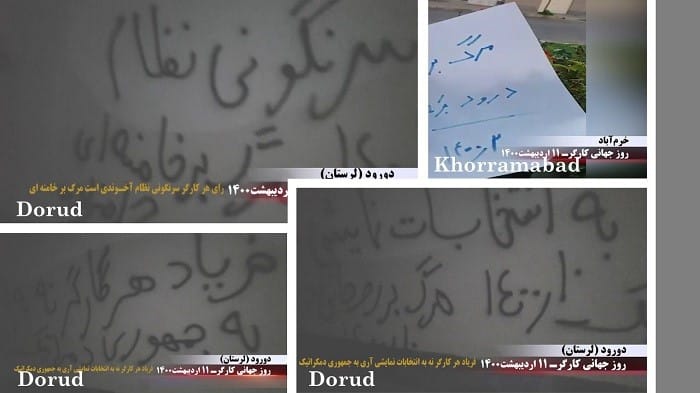 سرنگونی نظام
گ بر خامنه ای
دورود (لرستان)
ردیبهشت۱۴۰۰ رای هر کارگر سرنگونی نظام آخوندی است مرگ بر خامنه ای
Dorud
مرگ بر
درود بر
خرم‌آباد
روز جهانی کارگرـ ۱۱ اردیبهشت۱۴۰۰
Khorramabad
فریاد هر کارگر نه
به جمهوری
دورود (لرستان)
روز جهانی کارگرـ ۱۱ اردیبهشت۱۴۰۰ فریاد هر کارگر نه به انتخابات نمایشی آری به جمهوری دمکراتیک
Dorud
به انتخابات
۱۴۰۰ مرگ بر
دورود (لرستان)
روز جهانی کارگرـ ۱۱ اردیبهشت۱۴۰۰ فریاد هر کارگر نه به انتخابات نمایشی آری به جمهوری دمکراتیک
Dorud